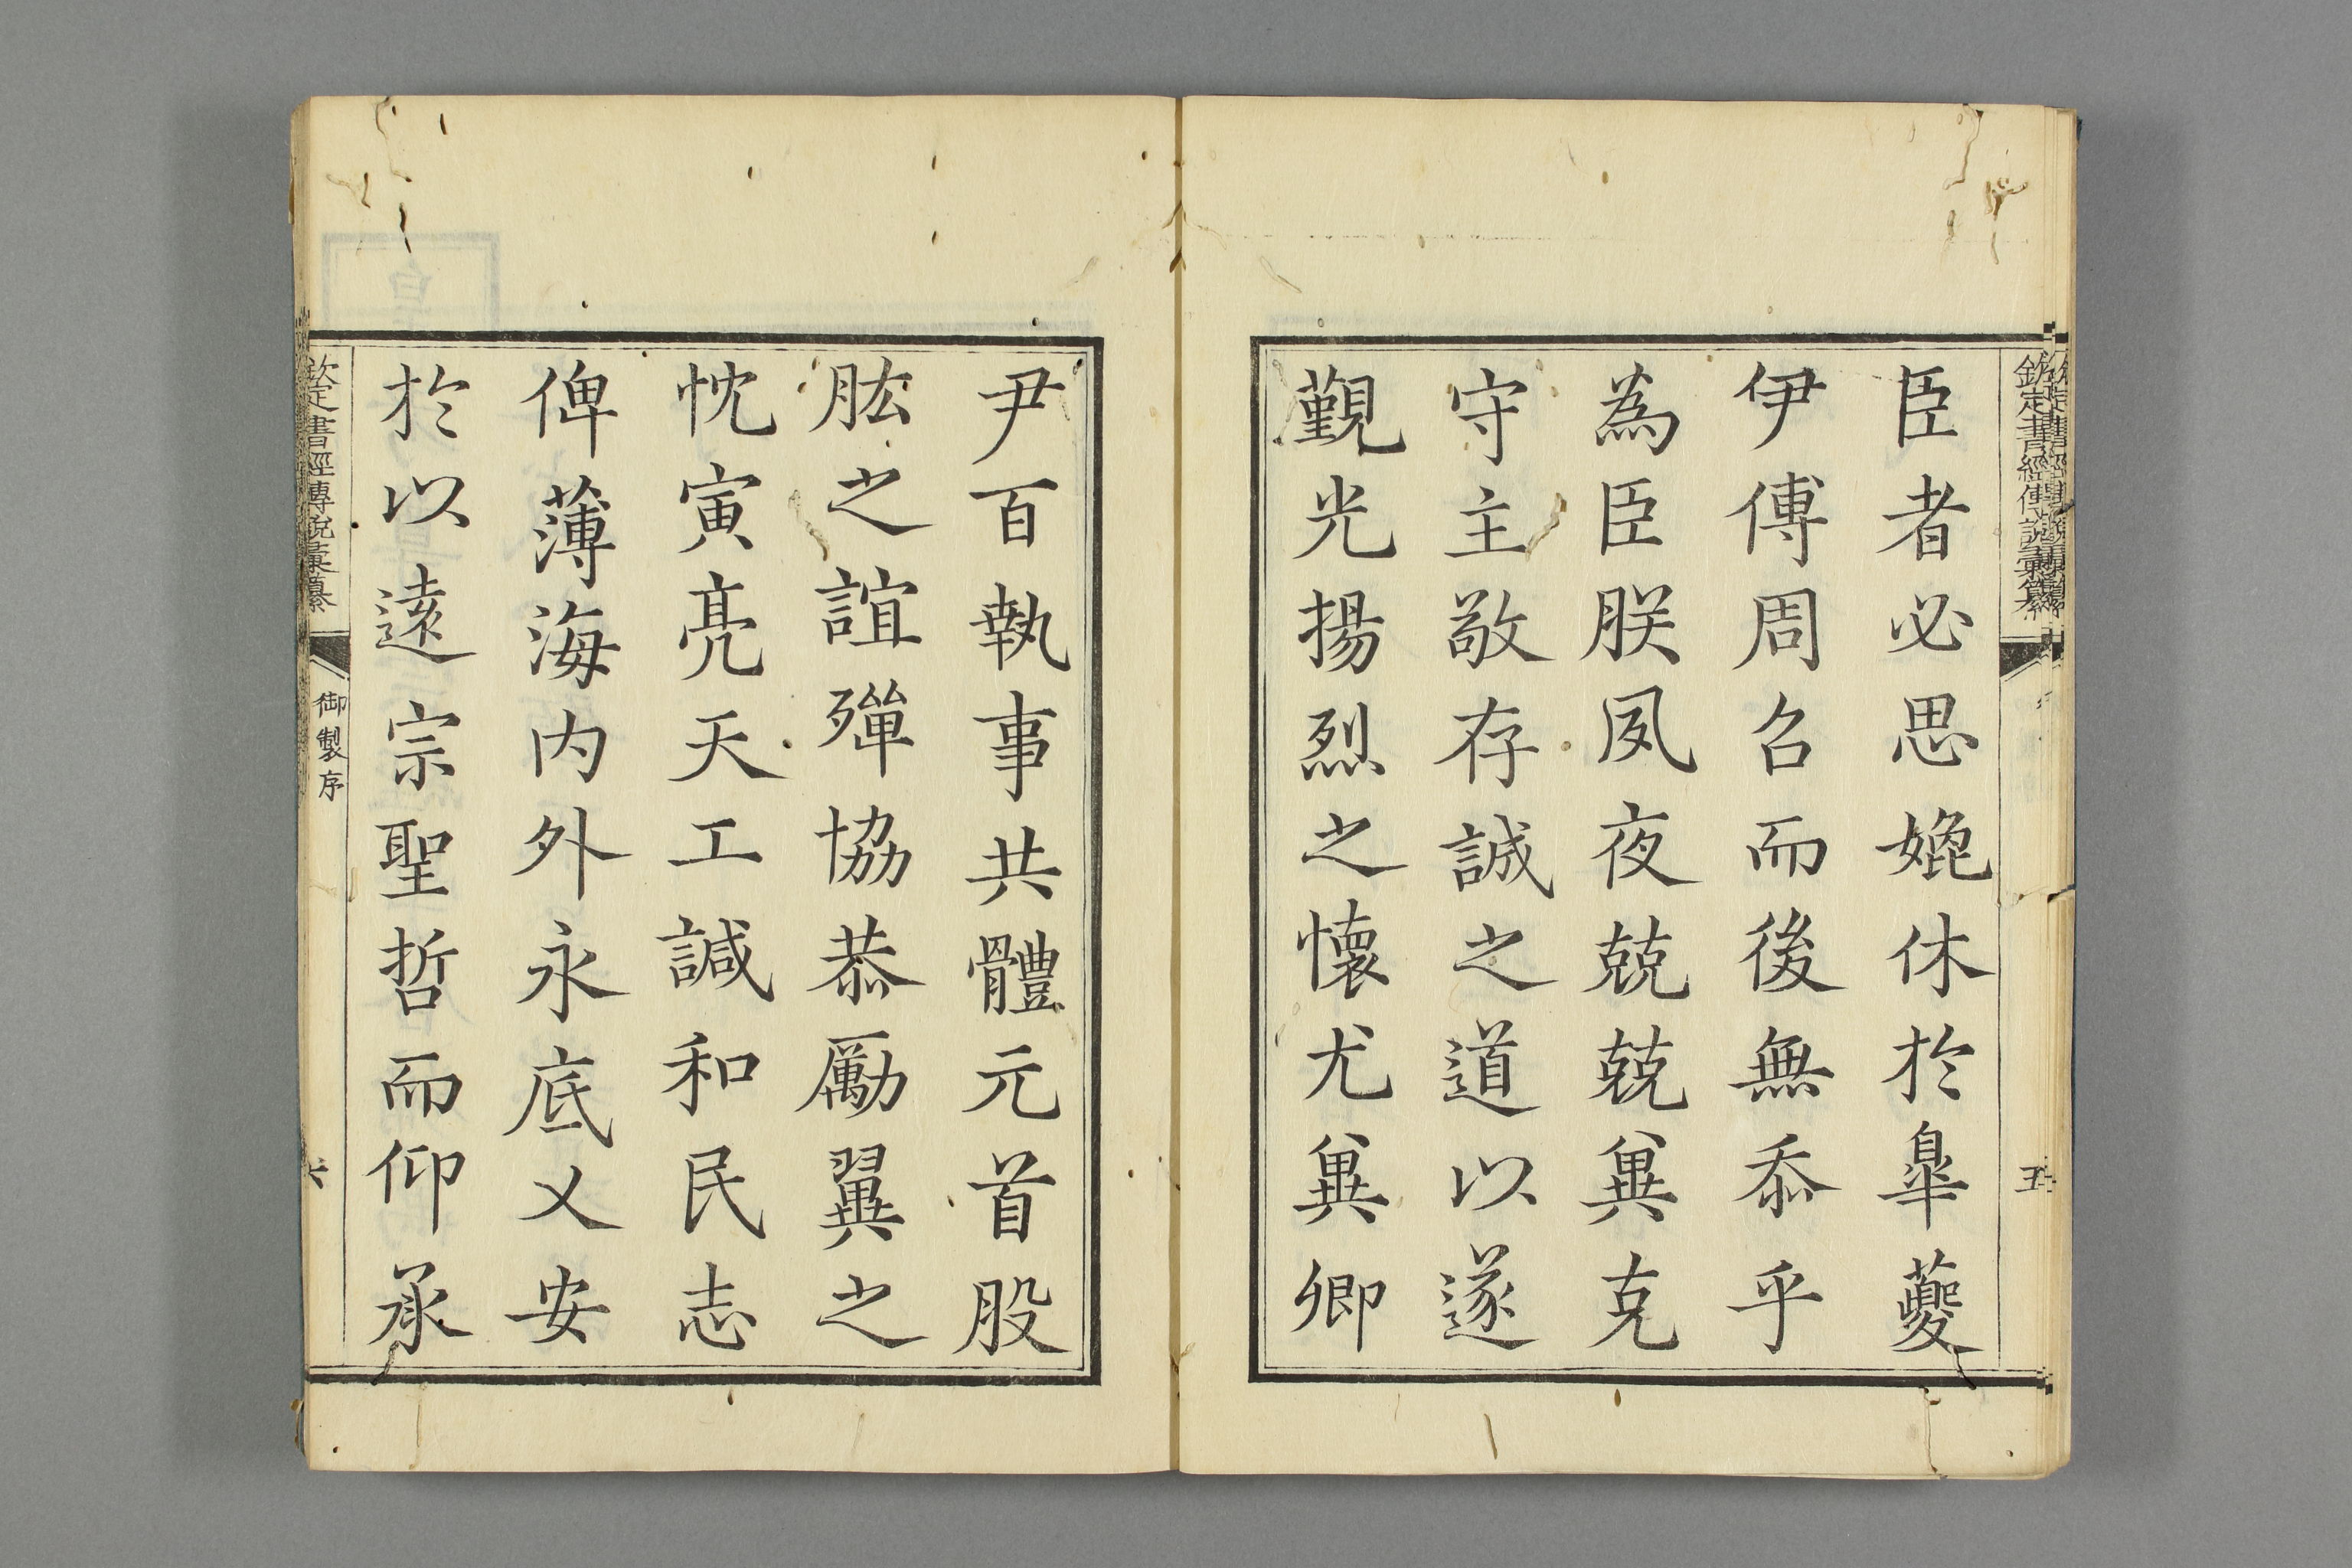 欽定書經傳說彙纂
五
臣者必思媲休於臯夔
伊傅周召而後無忝乎
為臣朕夙夜兢兢冀克
守主敬存誠之道以遂
覲光揚烈之懷尤冀卿
尹百執事共體元首股
肱之誼殫協恭勵翼之
忱寅亮天工諴和民志
俾薄海內外永底乂安
於以遠宗聖哲而仰承
欽定書經傳說彙纂
御製序
六